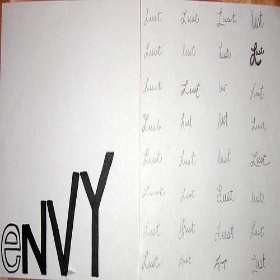 eNVY
Lust Lust Lust lust
Lust lust lust Lust
Lust Lust lust
Lust lust lust Lust
Lust Lust lust Lust
Lust Lust Lust lust
Lust Lust Lust Lust
Lust lust Lust Lust